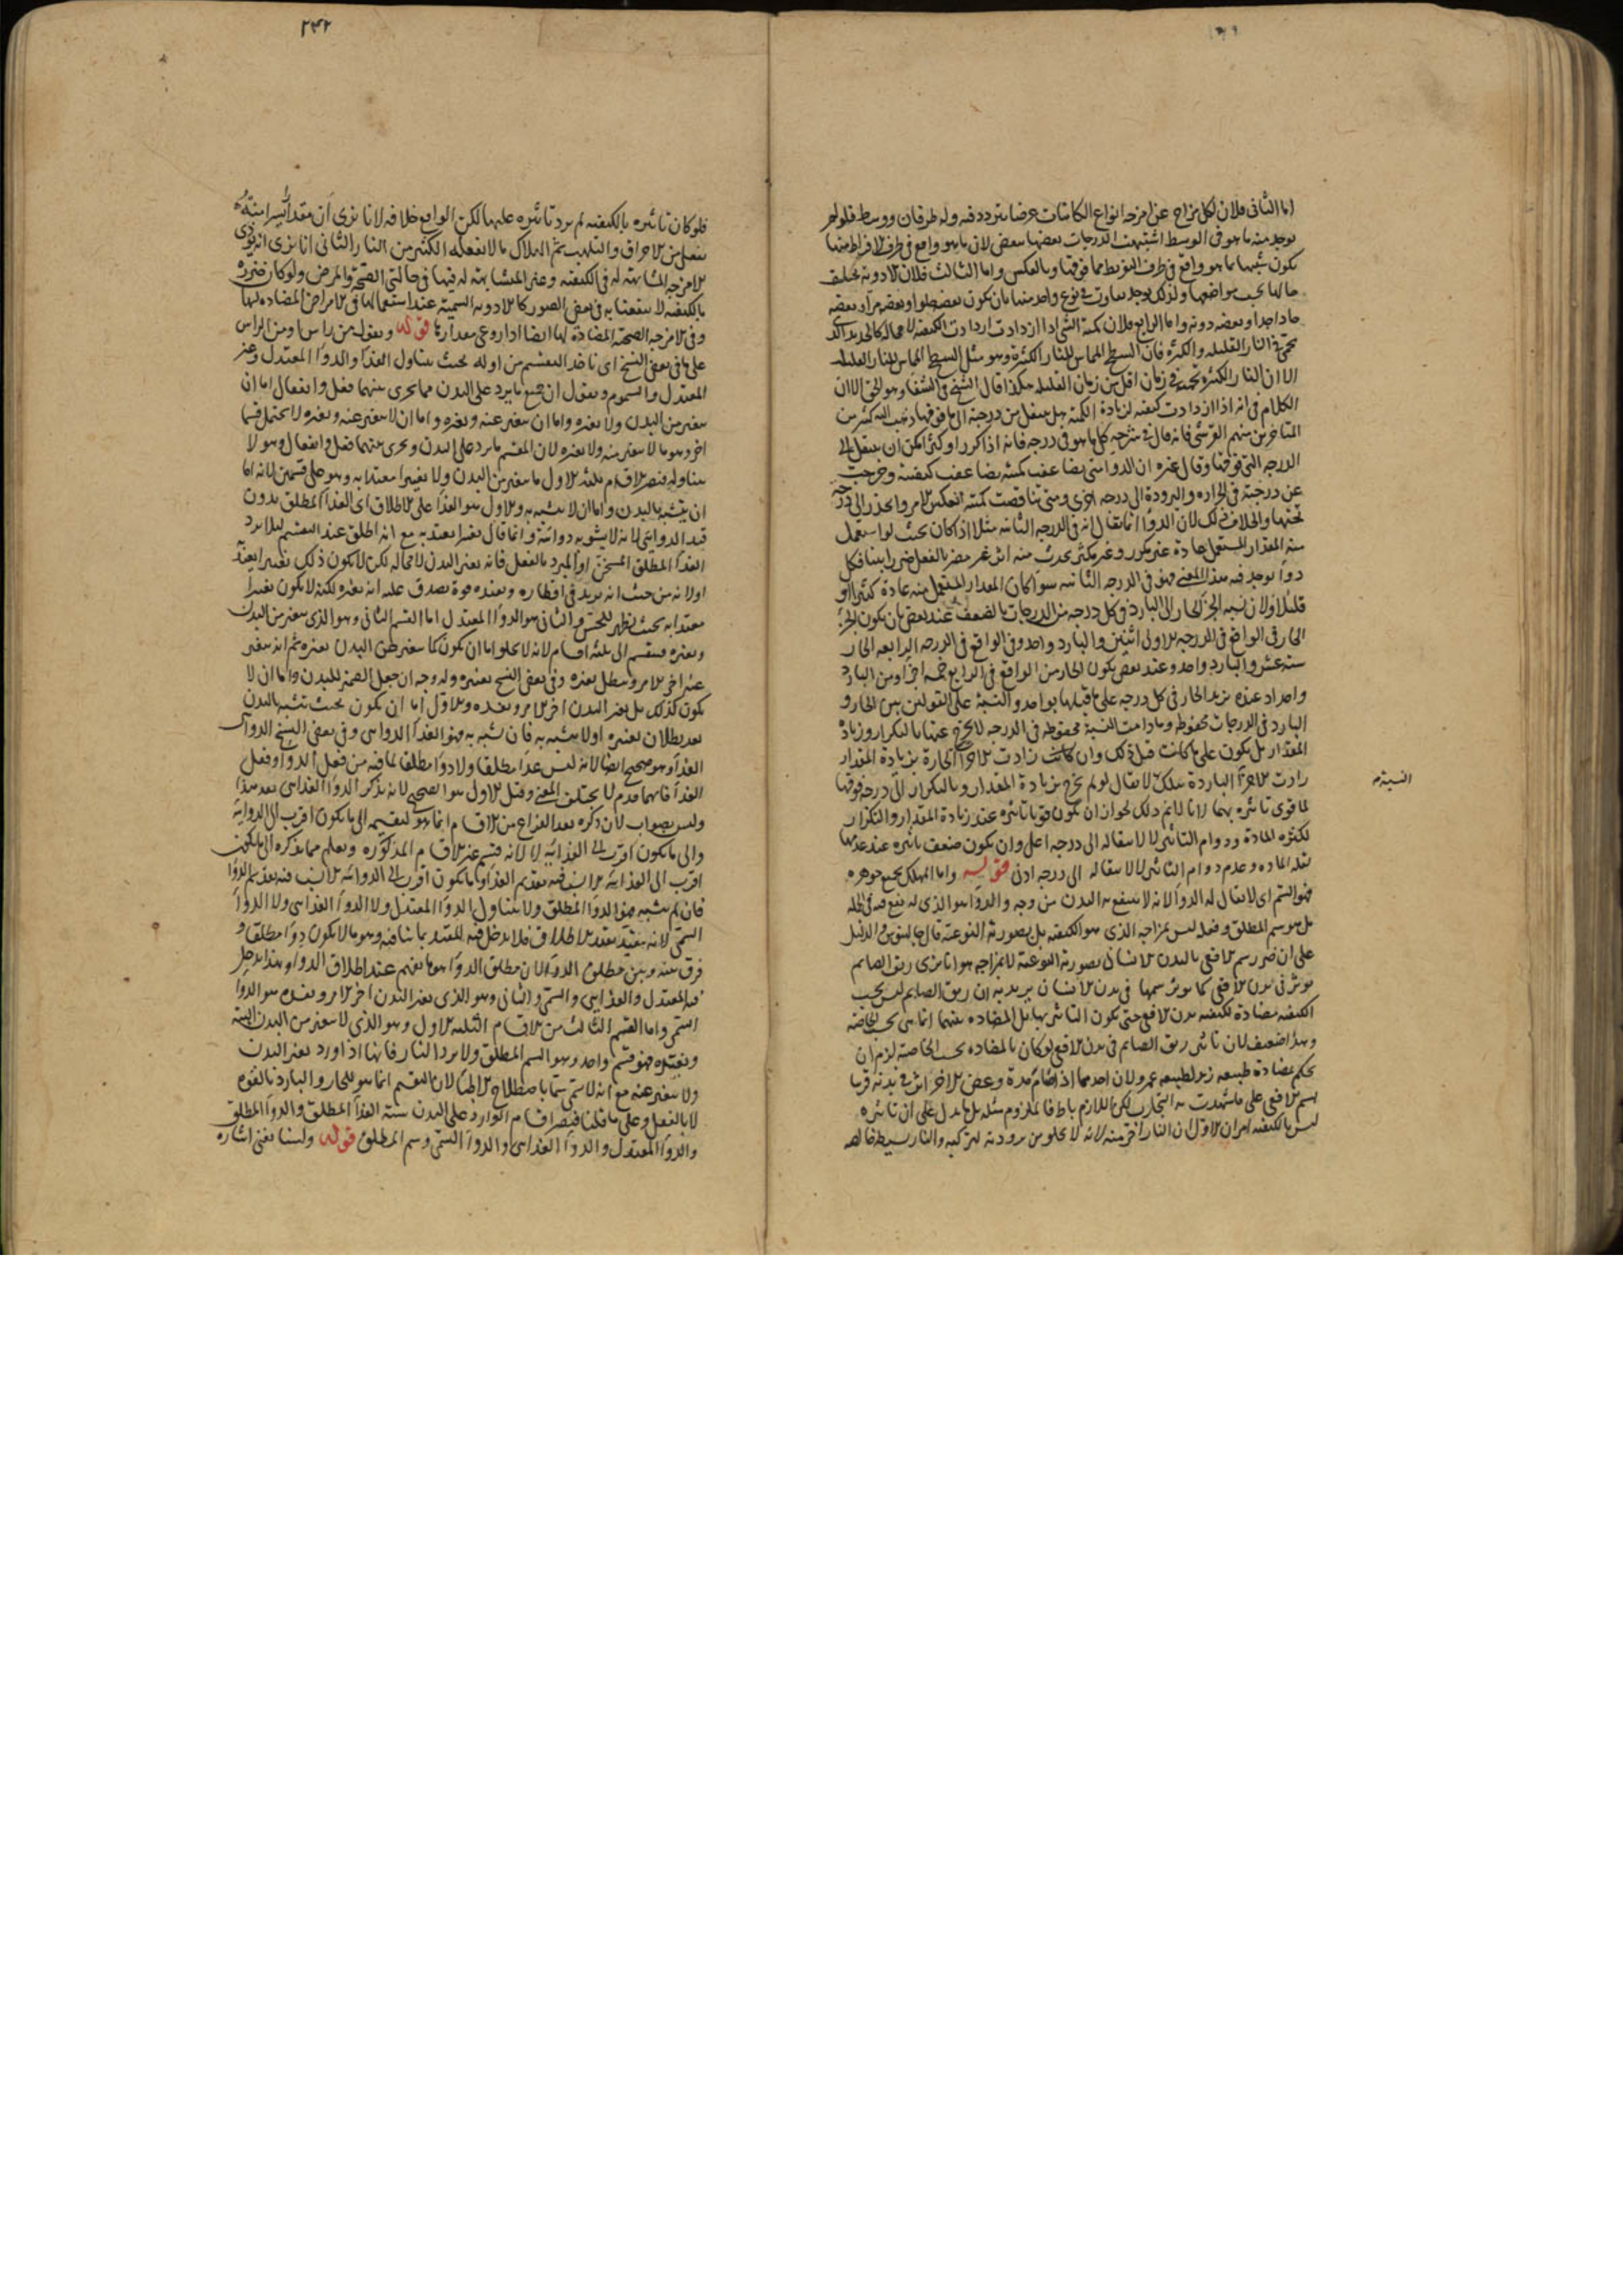 اما الثانى فلان لكل مزاج من امزجة انواع الكائنات عرضا يتردد فيه وله طرفان ووسط فلو لم
يوجد منه ما هو فى الوسط اشتبهت الدرجات بعضها ببعض لان ما هو واقع فى طرف الافراط منها
يكون شبيها بما هو واقع فى طرف التفريط مما فوقها وبالعكس واما الثالث فلان الادوية تختلف
حالها بحسب مواضعها ولذلك يوجد تفاوت فى نوع واحد منها بان يكون بعضه حلوا وبعضه مرا وبعضه
حادا جدا وبعضه دونه واما الرابع فلان كمية الشئ اذا ازدادت ازدادت الكيفية لا محالة كالحديد الذى
يحمى فى النار القليلة والكثيرة فان السطح المماس للنار الكثيرة وهو مثل السطح المماس للنار القليلة
الا ان النار الكثيرة تحميه فى زمان اقل من زمان القليلة هكذا قال الشيخ فى الشفا وهو الحق الا ان
الكلام فى انه اذا ازدادت كيفيته لزيادة الكمية هل ينتقل من درجة الى ما فوقها ذهب اليه كثير من
المتاخرين منهم القرشى فانه قال فى شرحه كل ما هو فى درجة فانه اذا كرر او كثر امكن ان ينتقل الى
الدرجة التى فوقها وقال غيره ان الدواء متى تضاعف كميته تضاعف كيفيته وخرجت
عن درجته فى الحرارة والبرودة الى درجة اخرى ومتى تناقصت كميته انعكس الامر وانحدر الى درجة
تحتها والخلاف فى ذلك لان الدوا انما يقال انه فى الدرجة الثانية مثلا اذا كان بحيث لو استعمل
منه المقدار المستعمل عادة غير مكرر وغير مكثر يحدث منه اثر غير مضر بالفعل ضررا بينا فكل
دوا يوجد فيه هذا المعنى فهو فى الدرجة الثانية سوا كان المقدار المستعمل منه عادة كثيرا او
قليلا ولان نسبة الجزء الحار الى البارد فى كل درجة من الدرجات بالضعف عند بعض بان يكون الجزء
الحار فى الواقع فى الدرجة الاولى اثنين والبارد واحد وفى الواقع فى الدرجة الرابعة الحار
ستة عشر والبارد واحد وعند بعض يكون الحار من الواقع فى الرابع خمسة اجزاء ومن البارد
واحد اذ عنده يزيد الحار فى كل درجة على ما قبلها بواحد والنسبة على القولين بين الحار و
البارد فى الدرجات محفوظة وما دامت النسبة محفوظة فى الدرجة لا يخرج عنها بالتكرار وزيادة
المقدار بل يكون على ما كانت قبل ذلك وان كانت زادت الاجزاء الحارة بزيادة المقدار
زادت الاجزاء الباردة بتلك لا يقال لو لم يخرج بزيادة المقدار وبالتكرار الى درجة فوقها
لما قوى تاثيره بهما لانا نمنع ذلك لجواز ان يكون قوة تاثيره عند زيادة المقدار والتكرار
لكثرة المادة ودوام التاثير لا لانتقاله الى درجة اعلى وان يكون ضعف تاثيره عند عدمها
لقلة المادة وعدم دوام التاثير لا لانتقاله الى درجة ادنى قوله واما المهلك بجميع جوهره
فهو السم اى لا يقال له الدواء لانه لا ينتفع به البدن من وجه والدواء هو الذى له نفع فى الجملة
بل هو سم المطلق وفعله ليس بمزاجه الذى هو الكيفية بل بصورته النوعية قال جالينوس والدليل
على ان ضرر سم الافعى بالبدن الانسانى بصورته النوعية لا بمزاجه هو انا نرى ريق الصايم
موثر فى بدن الافعى كما يوثر سمها فى بدن الانسان يريد به ان ريق الصايم ليس بحسب
الكيفية مضادة لكيفية بدن الافعى حتى يكون التاثير بها بل المضادة بينهما انما هى بحسب الخاصة
وهذا ضعيف لان تاثير ريق الصايم فى بدن الافعى لو كان بالمضادة بحسب الخاصة لزم ان
يحكم بمضادة طبيعة زيد لطبيعة عمرو لان احدهما اذا صام مدة وعض الاخر اثر فى بدنه قريبا
من سم الافعى على ما شهدت به التجارب لكن اللازم باطل فالملزوم مثله بل ما يدل على ان تاثيره
ليس بالكيفية امران الاول ان النار اقوى منه لانه لا يخلو من برودة لتركبه والنار بسيطة خالصة
النسبة
٢٤٢
فلو كان تاثيره بالكيفية لم يزد تاثيره عليها لكن الواقع خلافه لانا نرى ان مقدارا يسيرا منه
يفعل من الاحراق والتلهب ثم الهلاك ما لا يفعله الكثير من النار الثانى انا نرى انه يوذى
الامزجة المشابهة له فى الكيفية وغير المشابهة له فيها فى حالتى الصحة والمرض ولو كان ضرره
بالكيفية لا ينفعنا به فى بعض الصور كالادوية السمية عند استعمالها فى الامراض المضادة لها
وفى الامزجة الصحية المضادة لها ايضا اذا روعى مقدارها قوله ونقول من راس او من الراس
على ما فى بعض النسخ اى ناخذ التقسيم من اوله بحيث يتناول الغذا والدوا المعتدل وغير
المعتدل والسموم ونقول ان جميع ما يرد على البدن مما يجرى بينهما فعل وانفعال اما ان
يتغير من البدن ولا يغيره واما ان يتغير عنه ويغيره واما ان لا يتغير عنه ويغيره لا يحتمل قسما
اخر وهو ما لا يتغير منه ولا يغيره لان المقسم ما يرد على البدن ويجرى بينهما فعل وانفعال وهو لا
يتناوله فتصير الاقسام ثلثة الاول ما يتغير من البدن ولا يغيره تغييرا معتدا به وهو على قسمين لانه اما
ان يتشبه بالبدن واما ان لا يتشبه به والاول هو الغذا على الاطلاق اى الغذا المطلق بدون
قيد الدوائى لانه لا يشوبه دوائية وانما قال تغيرا يعتد به مع انه اطلق عند التقسيم ليلا يرد
الغذا المطلق المسخن او المبرد بالفعل فانه يغير البدن لا محالة لكن لا يكون ذلك تغييرا يعتد
اولا به من حيث انه يزيد فى اقطاره ويفيده قوة يصدق عليه انه يغيره لكنه لا يكون تغييرا
معتدا به بحيث يظهر للحس والثانى هو الدوا المعتدل اما القسم الثانى وهو الذى يتغير من البدن
ويغيره فينقسم الى ثلثة اقسام لانه لا يخلو اما ان يكون كما يتغير عن البدن يغيره ثم انه يتغير
عنه اخر الامر ويبطل تغيره وفى بعض النسخ تغييره وله وجه ان جعل الضمير للبدن واما ان لا
يكون كذلك بل يغير البدن اخر الامر ويفسده والاول اما ان يكون بحيث يتشبه بالبدن
بعد بطلان تغييره او لا يتشبه به فان تشبه به فهو الغذا الدوائى وفى بعض النسخ الدواء
الغذائى وهو صحيح ايضا لانه ليس غذا مطلقا ولا دوا مطلقا لما فيه من فعل الدوا وفعل
الغذا فايهما قدم لا يختلف المعنى وقيل الاول هو الصحيح لانه يذكر الدوا الغذائى بعد هذا
وليس بصواب لان ذكره بعد الفراغ من الاقسام انما هو لتقسيمه الى ما يكون اقرب الى الدوائية
والى ما يكون اقرب الى الغذائية لا لانه قسم غير الاقسام المذكورة ويعلم مما يذكره الى ما يكون
اقرب الى الغذائية الانسب فيه تقديم الغذا وما يكون اقرب الى الدوائية الانسب فيه تقديم الدوا
فان لم يتشبه فهو الدوا المطلق ولا يتناول الدوا المعتدل ولا الدوا الغذائى ولا الدوا
السمى لانه يتقيد بقيد الاطلاق فلا يدخل فيه المقيد بما ينافيه وهو ما لا يكون دوا مطلقا و
فرق بينه وبين مطلق الدوا لان مطلق الدوا هو ما يفهم عند اطلاق الدوا وهذا يدخل
فيه المعتدل والغذائى والسمى والثانى وهو الذى يغير البدن اخر الامر ويفسده هو الدوا
السمى واما القسم الثالث من الاقسام الثلثة الاول وهو الذى لا يتغير من البدن البتة
ويغيره فهو قسم واحد وهو السم المطلق ولا يرد النار فانها اذا ورد يغير البدن
ولا يتغير عنه مع انه لا يسمى سما باصطلاح الاطبا لان التقسيم انما هو للحار والبارد بالقوة
لا بالفعل وعلى ما قلنا فيصير اقسام الوارد على البدن ستة الغذا المطلق والدوا المطلق
والدوا المعتدل والدوا الغذائى والدوا السمى وسم المطلق قوله ولسنا نعنى اشارة